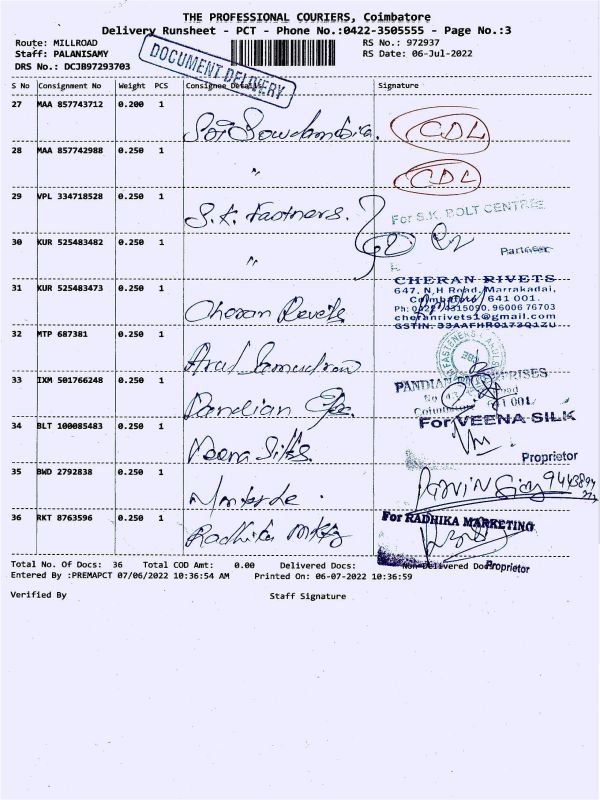 THE PROFESSIONAL COURIERS, Coimbatore
Delivery Runsheet - PCT - Phone No.:0422-3505555 - Page No.:3
Route: MILLROAD RS No.: 972937
Staff: PALANISAMY RS Date: 06-Jul-2022
DRS No.: DCJB97293703
DOCUMENT DELIVERY
S No Consignment No Weight PCS Consignee Details Signature
27 MAA 857743712 0.200 1 Sowdambica. CDL
28 MAA 857742988 0.250 1 " CDL
29 VPL 334718528 0.250 1 S.K. Fastners. For S.K. BOLT CENTRE
30 KUR 525483482 0.250 1 " Partner
31 KUR 525483473 0.250 1 Cheran CHERAN RIVETS
647, N.H Road, Marrakadai,
Coimbatore 641 001.
Ph: 0422 4315090, 96006 76703
cheranrivets1@gmail.com
GSTIN: 33AAFHR0173Q1ZU
32 MTP 687381 0.250 1 Arul
33 IXM 501766248 0.250 1 Pandian PANDIAN ENTERPRISES
Coimbatore 641 001.
34 BLT 100085483 0.250 1 Veena Silks For VEENA SILK
Proprietor
35 BWD 2792838 0.250 1
36 RKT 8763596 0.250 1 Radhika Mktg For RADHIKA MARKETING
Proprietor
Total No. Of Docs: 36 Total COD Amt: 0.00 Delivered Docs: Non-Delivered Docs:
Entered By :PREMAPCT 07/06/2022 10:36:54 AM Printed On: 06-07-2022 10:36:59
Verified By Staff Signature